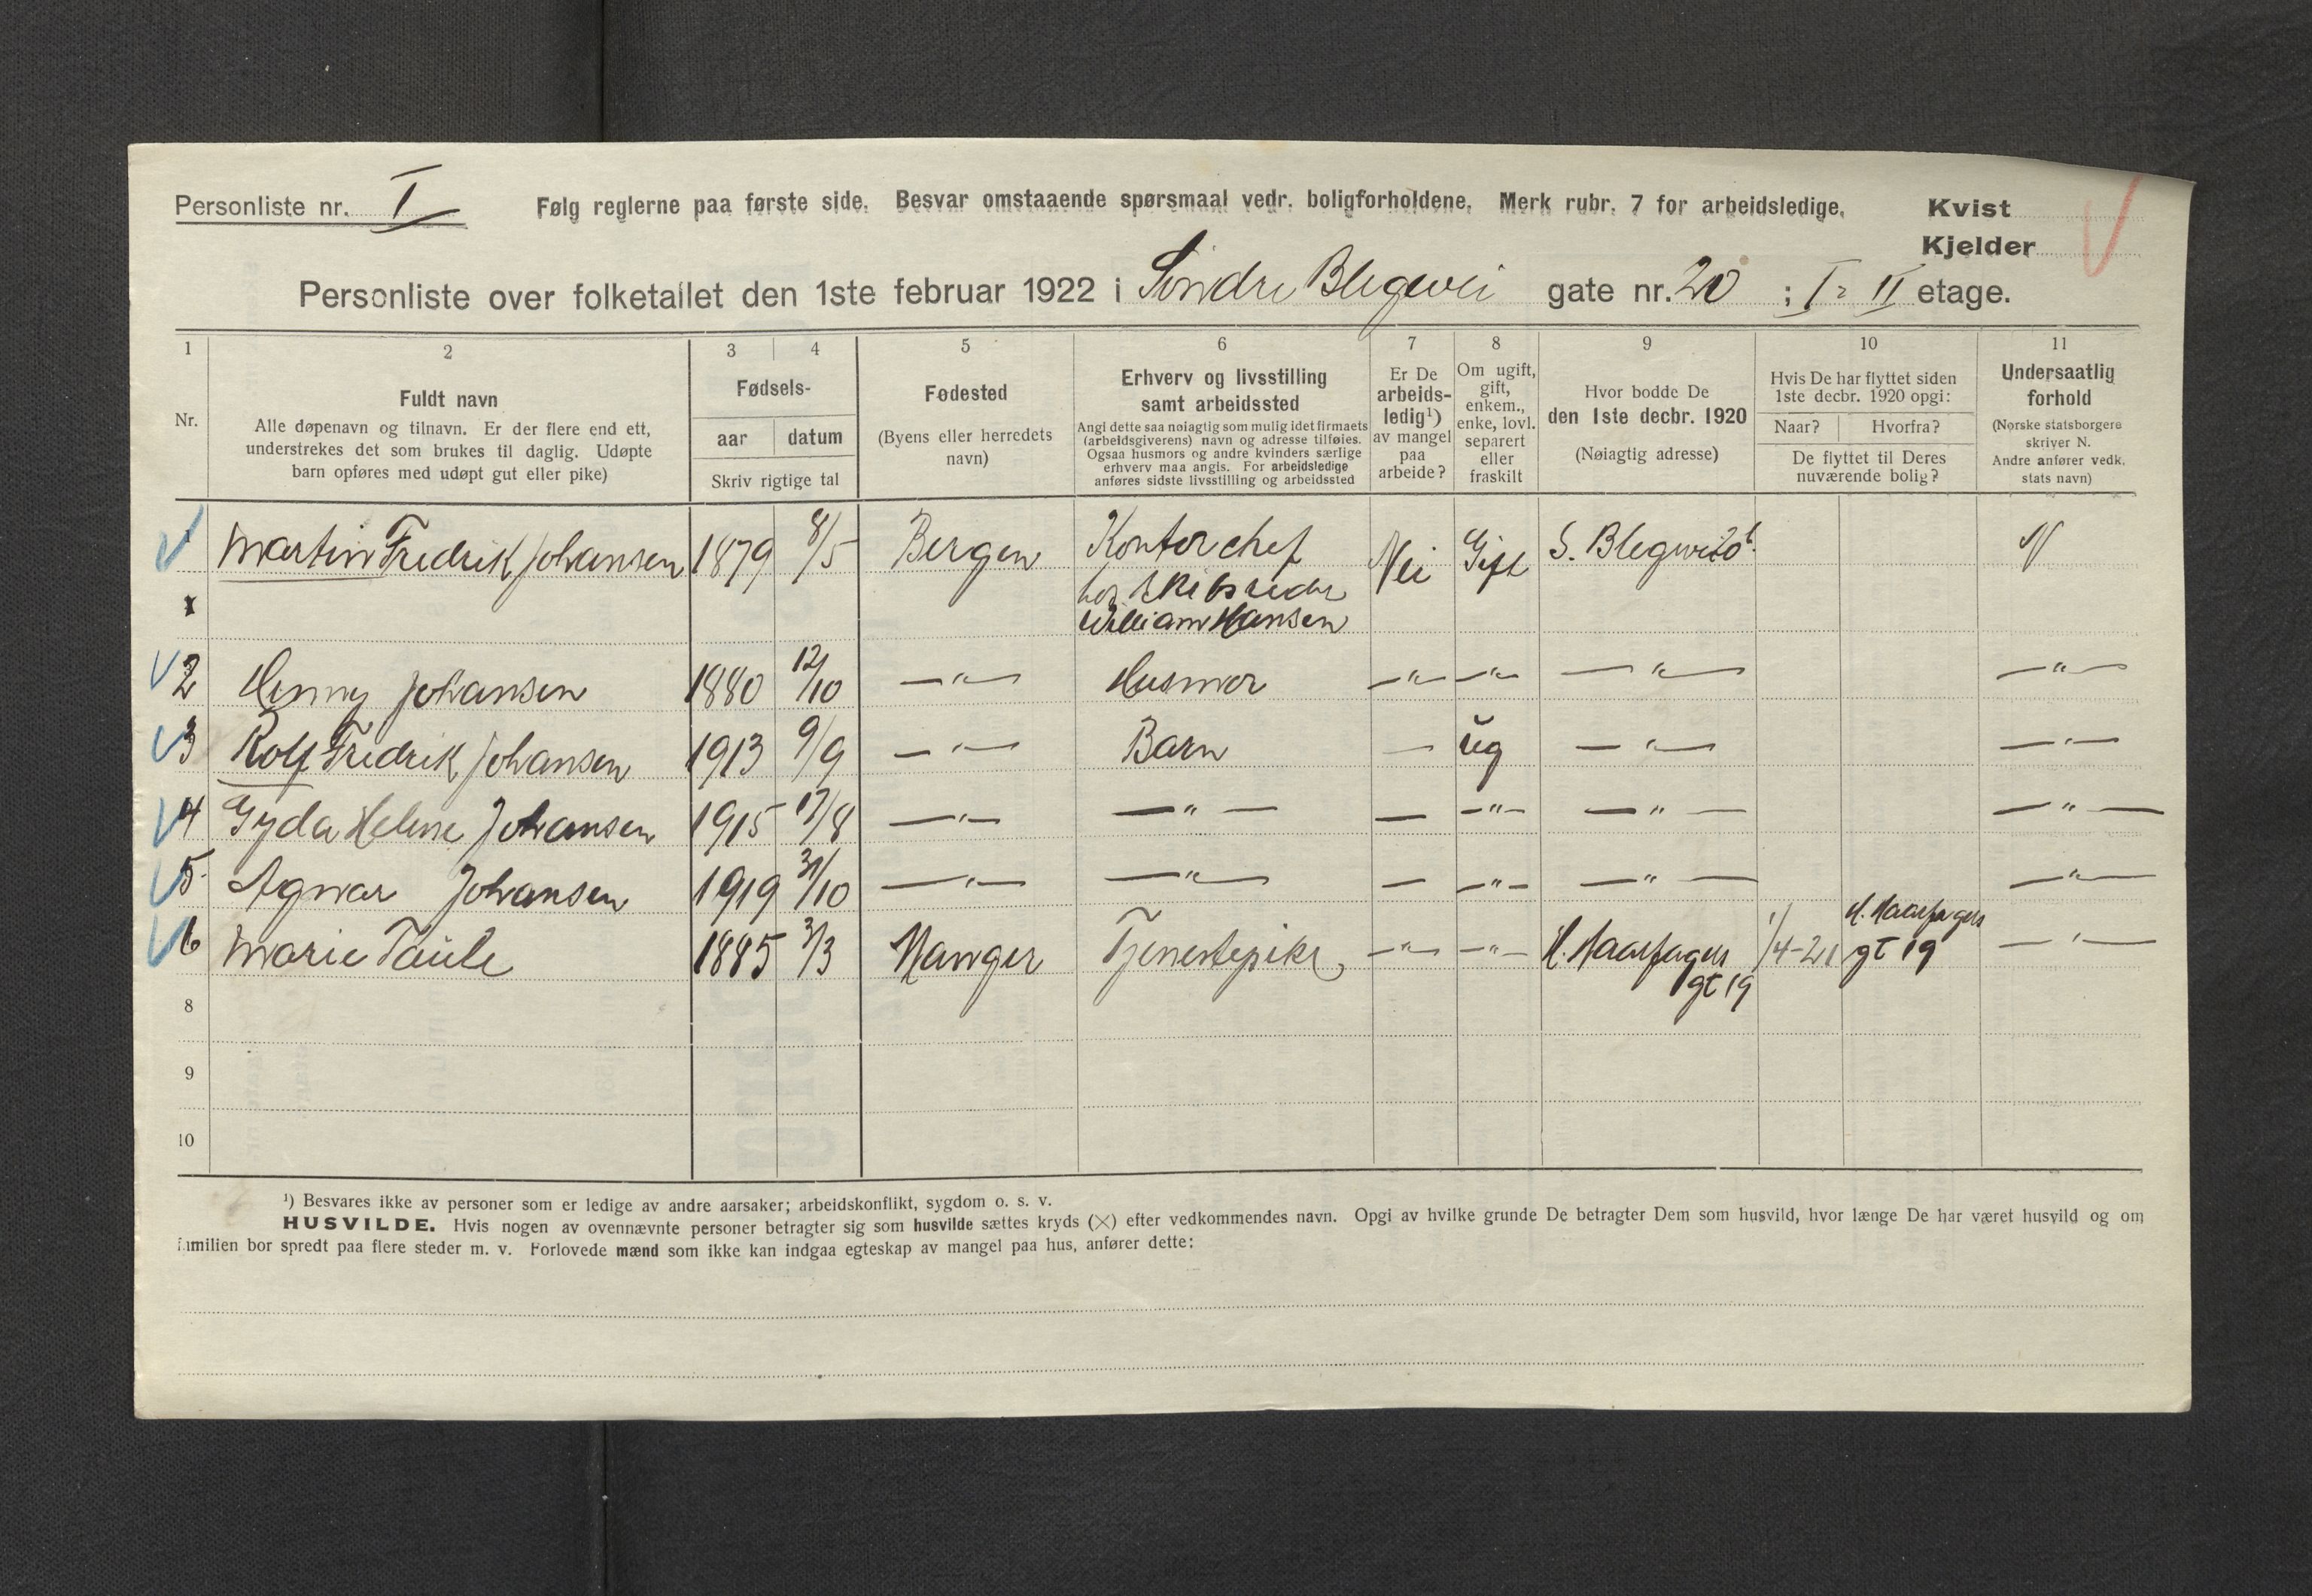 Personliste nr. I Følg reglerne paa første side. Besvar omstaaende spørsmaal vedr. boligforholdene. Merk rubr. 7 for arbeidsledige. Kvist
Kjelder
Personliste over folketallet den 1ste februar 1922 i Søndre Blegevei gate nr. 20 ; I & II etage.
1 2 3 4 5 6 7 8 9 10 11
Nr.
Fuldt navn
Alle døpenavn og tilnavn. Er der flere end ett,
understrekes det som brukes til daglig. Udøpte
barn opføres med udøpt gut eller pike)
Fødsels-
aar datum
Skriv rigtige tal
Fødested
(Byens eller herredets
navn)
Erhverv og livsstilling
samt arbeidssted
Angi dette saa nøiagtig som mulig idet firmaets
(arbeidsgiverens) navn og adresse tilføies.
Ogsaa husmors og andre kvinders særlige
erhverv maa angis. For arbeidsledige
anføres sidste livsstilling og arbeidssted
Er De
arbeids-
ledig¹)
av mangel
paa
arbeide?
Om ugift,
gift,
enkem.,
enke, lovl.
separert
eller
fraskilt
Hvor bodde De
den 1ste decbr. 1920
(Nøiagtig adresse)
Hvis De har flyttet siden
1ste decbr. 1920 opgi:
Naar? Hvorfra?
De flyttet til Deres
nuværende bolig?
Undersaatlig
forhold
(Norske statsborgere
skriver N.
Andre anfører vedk.
stats navn)
1 Martin Fredrik Johansen 1879 8/5 Bergen Kontorchef Nei Gift S. Blegevei 20 N
hos Skibsreder
William Hansen
2 Henny Johansen 1880 12/10 —"— Husmor —"— —"— —"— —"—
3 Rolf Fredrik Johansen 1913 9/9 —"— Barn — ug —"— —"—
4 Gyda Helene Johansen 1915 17/8 —"— —"— — —"— —"— —"—
5 Agnar Johansen 1919 31/10 —"— —"— — —"— —"— —"—
6 Marie Taule 1885 3/3 Manger Tjenestepike —"— —"— H. Haarfagers gt 19 1/4-21 H. Haarfagers gt 19 —"—
8
9
10
¹) Besvares ikke av personer som er ledige av andre aarsaker; arbeidskonflikt, sygdom o. s. v.
HUSVILDE. Hvis nogen av ovennævnte personer betragter sig som husvilde sættes kryds (×) efter vedkommendes navn. Opgi av hvilke grunde De betragter Dem som husvild, hvor længe De har været husvild og om
familien bor spredt paa flere steder m. v. Forlovede mænd som ikke kan indgaa egteskap av mangel paa hus, anfører dette: